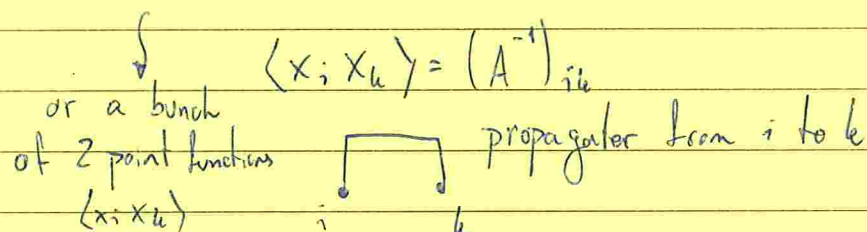 ⟨x_i x_k⟩ = (A^{-1})_{ik}
or a bunch
of 2 point functions
⟨x_i x_k⟩
propagater from i to k
i k